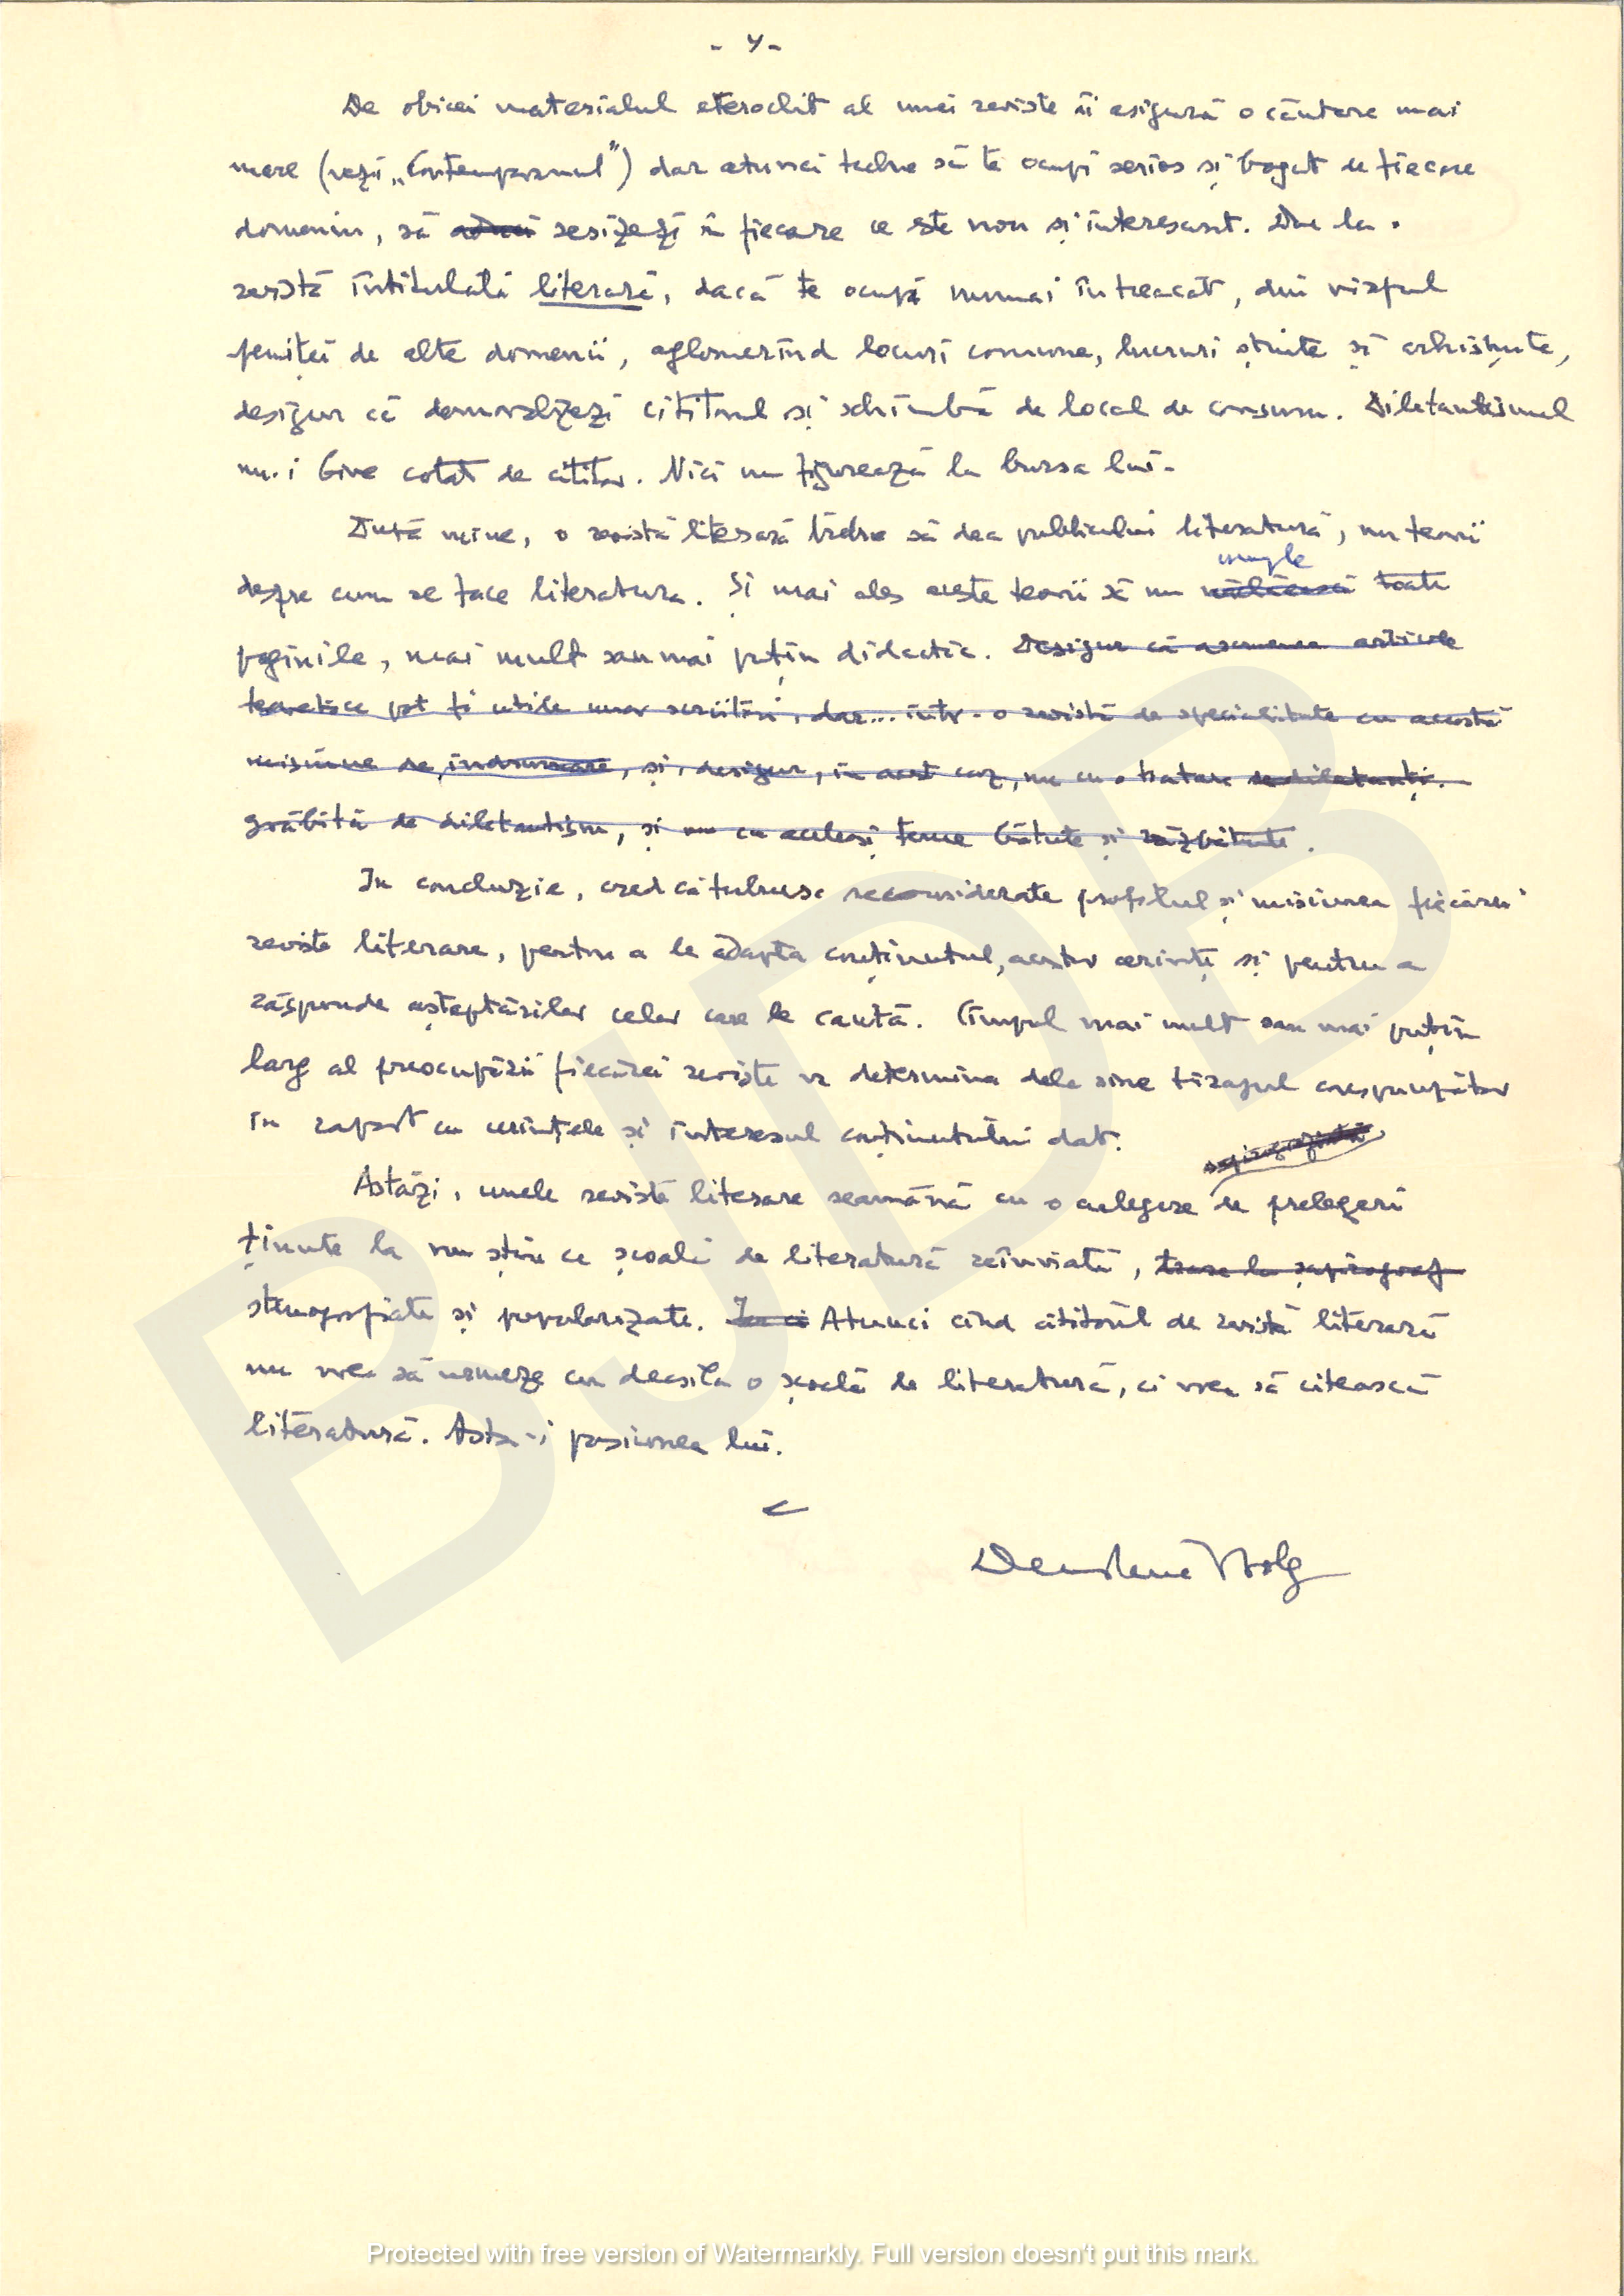 - 4 -
De obicei materialul eteroclit al unei reviste îi asigură o căutare mai
mare (vezi „Contemporanul") dar atunci trebue să te ocupi serios și bogat de fiecare
domeniu, să sesizezi în fiecare ce este nou și interesant. De la o
revistă întitulată literară, dacă te ocupi numai în treacăt, din vârful
peniței de alte domenii, aglomerînd locuri comune, lucruri știute și arhiștiute,
desigur că demoralizezi cititorul și schimbă de local de consum. Diletantismul
nu-i bine cotat de cititor. Nici nu figurează la bursa lui.
După mine, o revistă literară trebue să dea publicului literatură, nu teorii
umple
despre cum se face literatura. Și mai ales aceste teorii să nu toate
paginile, mai mult sau mai puțin didactic. Desigur că asemenea articole
teoretice pot fi utile unor scriitori, dar... într-o revistă de specialitate cu această
misiune de îndrumare, și, desigur, în acest caz, nu cu o tratare de diletanți.
grăbită de diletantism, și nu cu aceleași teme bătute și răzbătute.
In concluzie, cred că trebuesc reconsiderate profilul și misiunea fiecărei
reviste literare, pentru a le adapta conținutul, acestor cerințe și pentru a
răspunde așteptărilor celor care le caută. Cîmpul mai mult sau mai puțin
larg al preocupării fiecărei reviste va determina dela sine tirajul corespunzător
în raport cu cerințele și interesul conținutului dat.
șapirografiată
Astăzi, unele reviste literare seamănă cu o culegere de prelegeri
ținute la nu știu ce școală de literatură reînviată, trase la șapirograf
stenografiate și popularizate. Atunci cînd cititorul de revistă literară
nu vrea să urmeze cu deasila o școală de literatură, ci vrea să citească
literatură. Asta-i pasiunea lui.
Protected with free version of Watermarkly. Full version doesn't put this mark.
BJDB